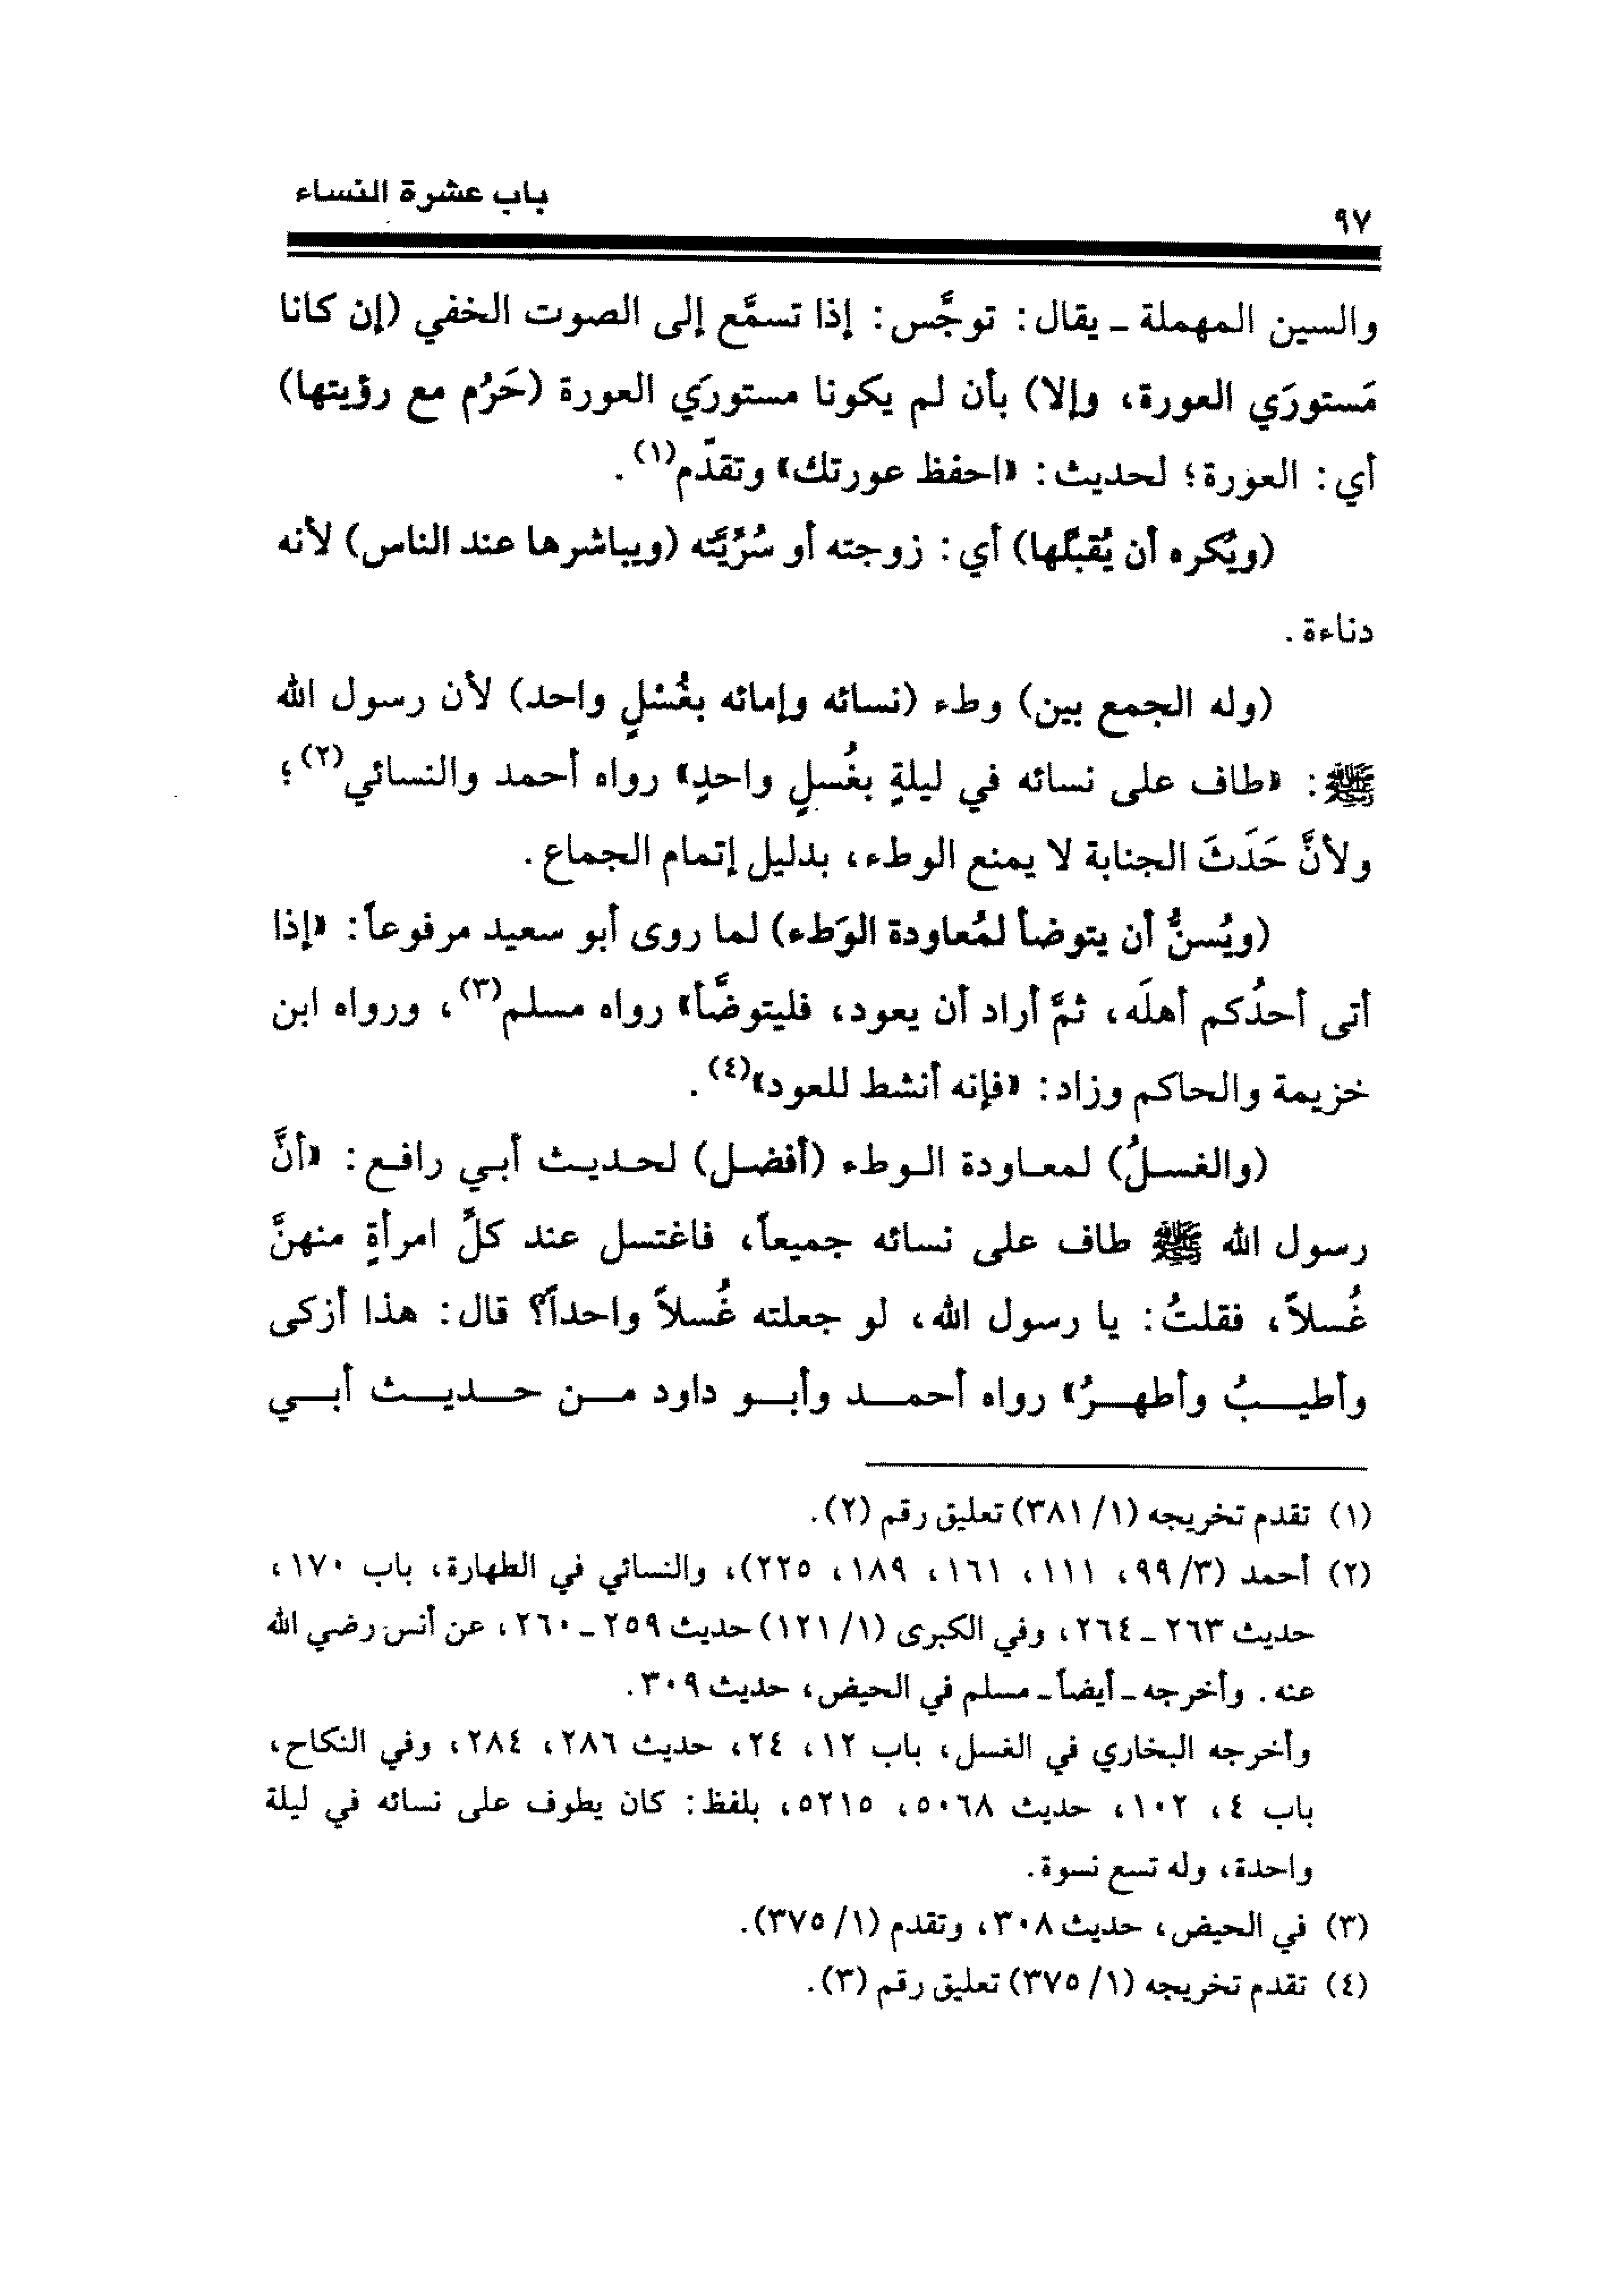 باب عشرة النساء
٩٧
والسين المهملة ـ يقال: توجَّس: إذا تسمَّع إلى الصوت الخفي (إن كانا
مَستورَي العورة، وإلا) بأن لم يكونا مستورَي العورة (حَرُم مع رؤيتها)
أي: العورة؛ لحديث: «احفظ عورتك» وتقدّم(١).
(ويُكره أن يُقبِّلها) أي: زوجته أو سُرِّيَّته (ويباشرها عند الناس) لأنه
دناءة.
(وله الجمع بين) وطء (نسائه وإمائه بغُسْلٍ واحد) لأن رسول الله
ﷺ: «طاف على نسائه في ليلةٍ بغُسلٍ واحدٍ» رواه أحمد والنسائي(٢)؛
ولأنَّ حَدَثَ الجنابة لا يمنع الوطء، بدليل إتمام الجماع.
(ويُسنُّ أن يتوضأ لمُعاودة الوَطء) لما روى أبو سعيد مرفوعاً: «إذا
أتى أحدُكم أهلَه، ثمَّ أراد أن يعود، فليتوضَّأ» رواه مسلم(٣)، ورواه ابن
خزيمة والحاكم وزاد: «فإنه أنشط للعود»(٤).
(والغسلُ) لمعاودة الوطء (أفضل) لحديث أبي رافع: «أنَّ
رسول الله ﷺ طاف على نسائه جميعاً، فاغتسل عند كلِّ امرأةٍ منهنَّ
غُسلاً، فقلتُ: يا رسول الله، لو جعلته غُسلاً واحداً؟ قال: هذا أزكى
وأطيبُ وأطهرُ» رواه أحمد وأبو داود من حديث أبي
(١) تقدم تخريجه (١/ ٣٨١) تعليق رقم (٢).
(٢) أحمد (٣/ ٩٩، ١١١، ١٦١، ١٨٩، ٢٢٥)، والنسائي في الطهارة، باب ١٧٠،
حديث ٢٦٣ ـ ٢٦٤، وفي الكبرى (١/ ١٢١) حديث ٢٥٩ ـ ٢٦٠، عن أنس رضي الله
عنه. وأخرجه ـ أيضاً ـ مسلم في الحيض، حديث ٣٠٩.
وأخرجه البخاري في الغسل، باب ١٢، ٢٤، حديث ٢٨٦، ٢٨٤، وفي النكاح،
باب ٤، ١٠٢، حديث ٥٠٦٨، ٥٢١٥، بلفظ: كان يطوف على نسائه في ليلة
واحدة، وله تسع نسوة.
(٣) في الحيض، حديث ٣٠٨، وتقدم (١/ ٣٧٥).
(٤) تقدم تخريجه (١/ ٣٧٥) تعليق رقم (٣).